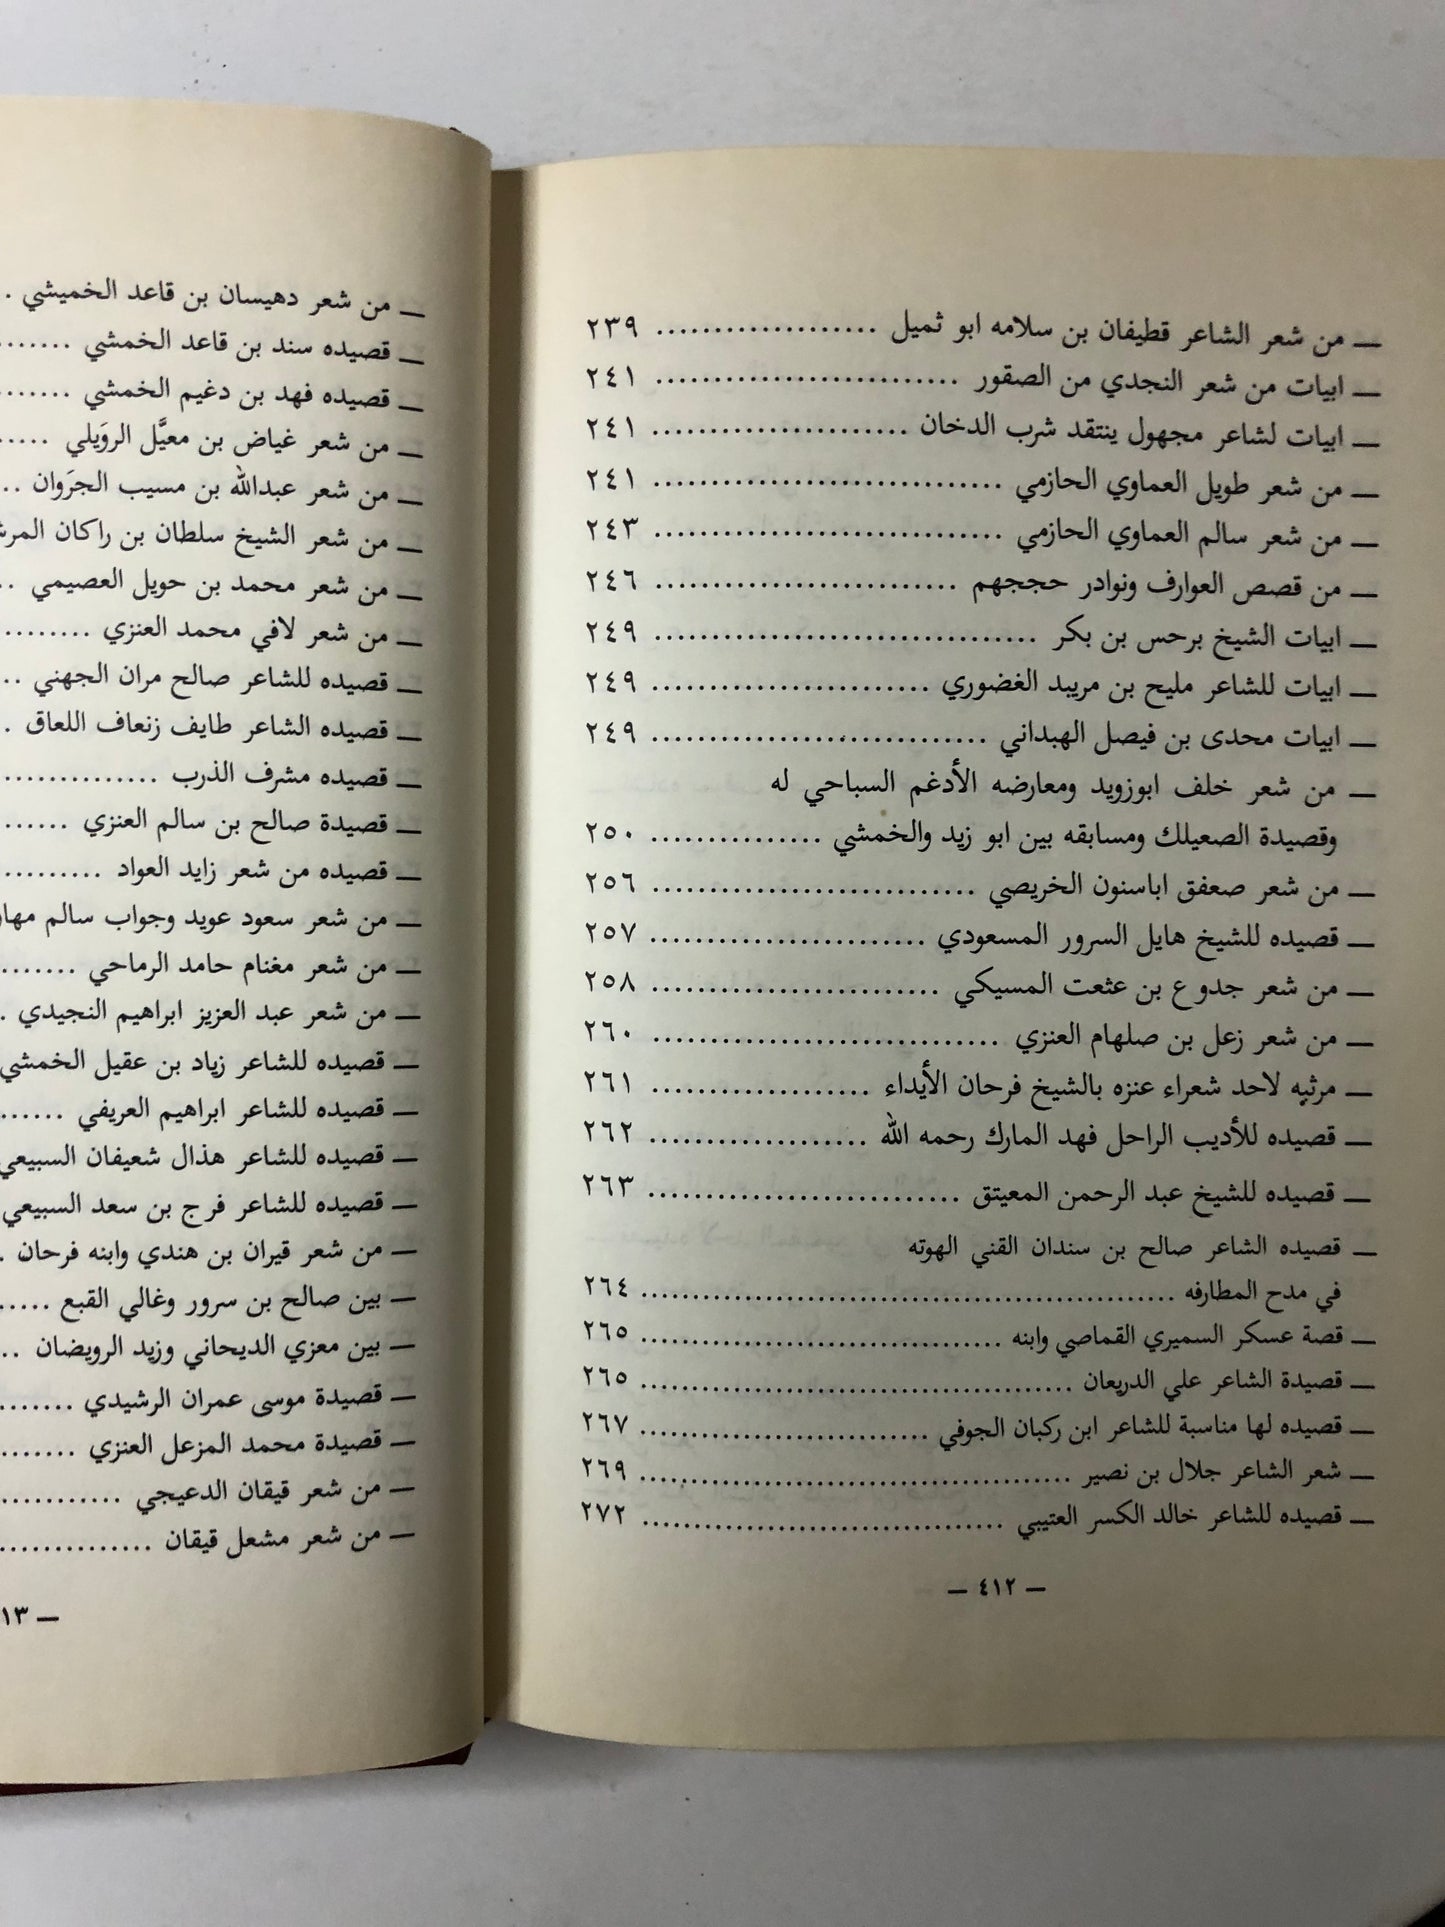 — من شعر الشاعر قطيفان بن سلامه ابو ثميل .................... ٢٣٩
— ابيات من شعر النجدي من الصقور ........................... ٢٤١
— ابيات لشاعر مجهول ينتقد شرب الدخان ....................... ٢٤١
— من شعر طويل العماوي الحازمي ............................... ٢٤١
— من شعر سالم العماوي الحازمي ............................... ٢٤٣
— من قصص العوارف ونوادر حججهم ........................... ٢٤٦
— ابيات الشيخ برحس بن بكر .................................. ٢٤٩
— ابيات للشاعر مليح بن مريبد الغضوري ......................... ٢٤٩
— ابيات محدى بن فيصل الهبداني .............................. ٢٤٩
— من شعر خلف ابوزويد ومعارضه الأدغم السباحي له
وقصيدة الصعيلك ومسابقه بين ابو زيد والخمشي ................ ٢٥٠
— من شعر صعفق اباسنون الخريصي ............................. ٢٥٦
— قصيده للشيخ هايل السرور المسعودي ......................... ٢٥٧
— من شعر جدوع بن عثعت المسيكي .......................... ٢٥٨
— من شعر زعل بن صلهام العنزي ............................... ٢٦٠
— مرثيه لاحد شعراء عنزه بالشيخ فرحان الأيداء .................... ٢٦١
— قصيده للأديب الراحل فهد المارك رحمه الله .................... ٢٦٢
— قصيده للشيخ عبد الرحمن المعيتق ............................ ٢٦٣
— قصيده الشاعر صالح بن سندان القني الهوته
في مدح المطارفه .................................................... ٢٦٤
— قصة عسكر السميري القماصي وابنه ................................... ٢٦٥
— قصيدة الشاعر علي الدريعان .......................................... ٢٦٥
— قصيده لها مناسبة للشاعر ابن ركبان الجوفي ............................ ٢٦٧
— شعر الشاعر جلال بن نصير .......................................... ٢٦٩
— قصيده للشاعر خالد الكسر العتيبي ................................... ٢٧٢
— ٤١٢ —
— من شعر دهيسان بن قاعد الخميشي .
— قصيده سند بن قاعد الخمشي .......
— قصيده فهد بن دغيم الخمشي .......
— من شعر غياض بن معيَّل الروَيلي .....
— من شعر عبدالله بن مسيب الجرَوان ..
— من شعر الشيخ سلطان بن راكان
— من شعر محمد بن حويل العصيمي ..
— من شعر لافي محمد العنزي ........
— قصيده للشاعر صالح مران الجهني ..
— قصيده الشاعر طايف زنعاف اللعاق .
— قصيده مشرف الذرب ..............
— قصيدة صالح بن سالم العنزي ......
— قصيده من شعر زايد العواد .........
— من شعر سعود عويد وجواب سالم
— من شعر مغنام حامد الرماحي .......
— من شعر عبد العزيز ابراهيم النجيدي .
— قصيده للشاعر زياد بن عقيل الخمشي
— قصيده للشاعر ابراهيم العريفي ......
— قصيده للشاعر هذال شعيفان السبيعي
— قصيده للشاعر فرج بن سعد السبيعي
— من شعر قيران بن هندي وابنه فرحان .
— بين صالح بن سرور وغالي القبع .....
— بين معزي الديحاني وزيد الرويضان ..
— قصيدة موسى عمران الرشيدي .......
— قصيدة محمد المزعل العنزي .......
— من شعر قيقان الدعيجي ...........
— من شعر مشعل قيقان ..............
— ١٣